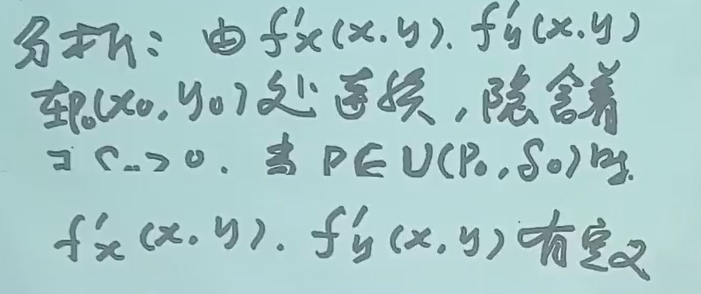 分析：由 f'x(x.y). f'y(x.y)
在P₀(x₀,y₀)处连续，隐含着
∃ δ₀>0. 当 P∈U(P₀,δ₀)时.
f'x(x.y). f'y(x,y)有定义